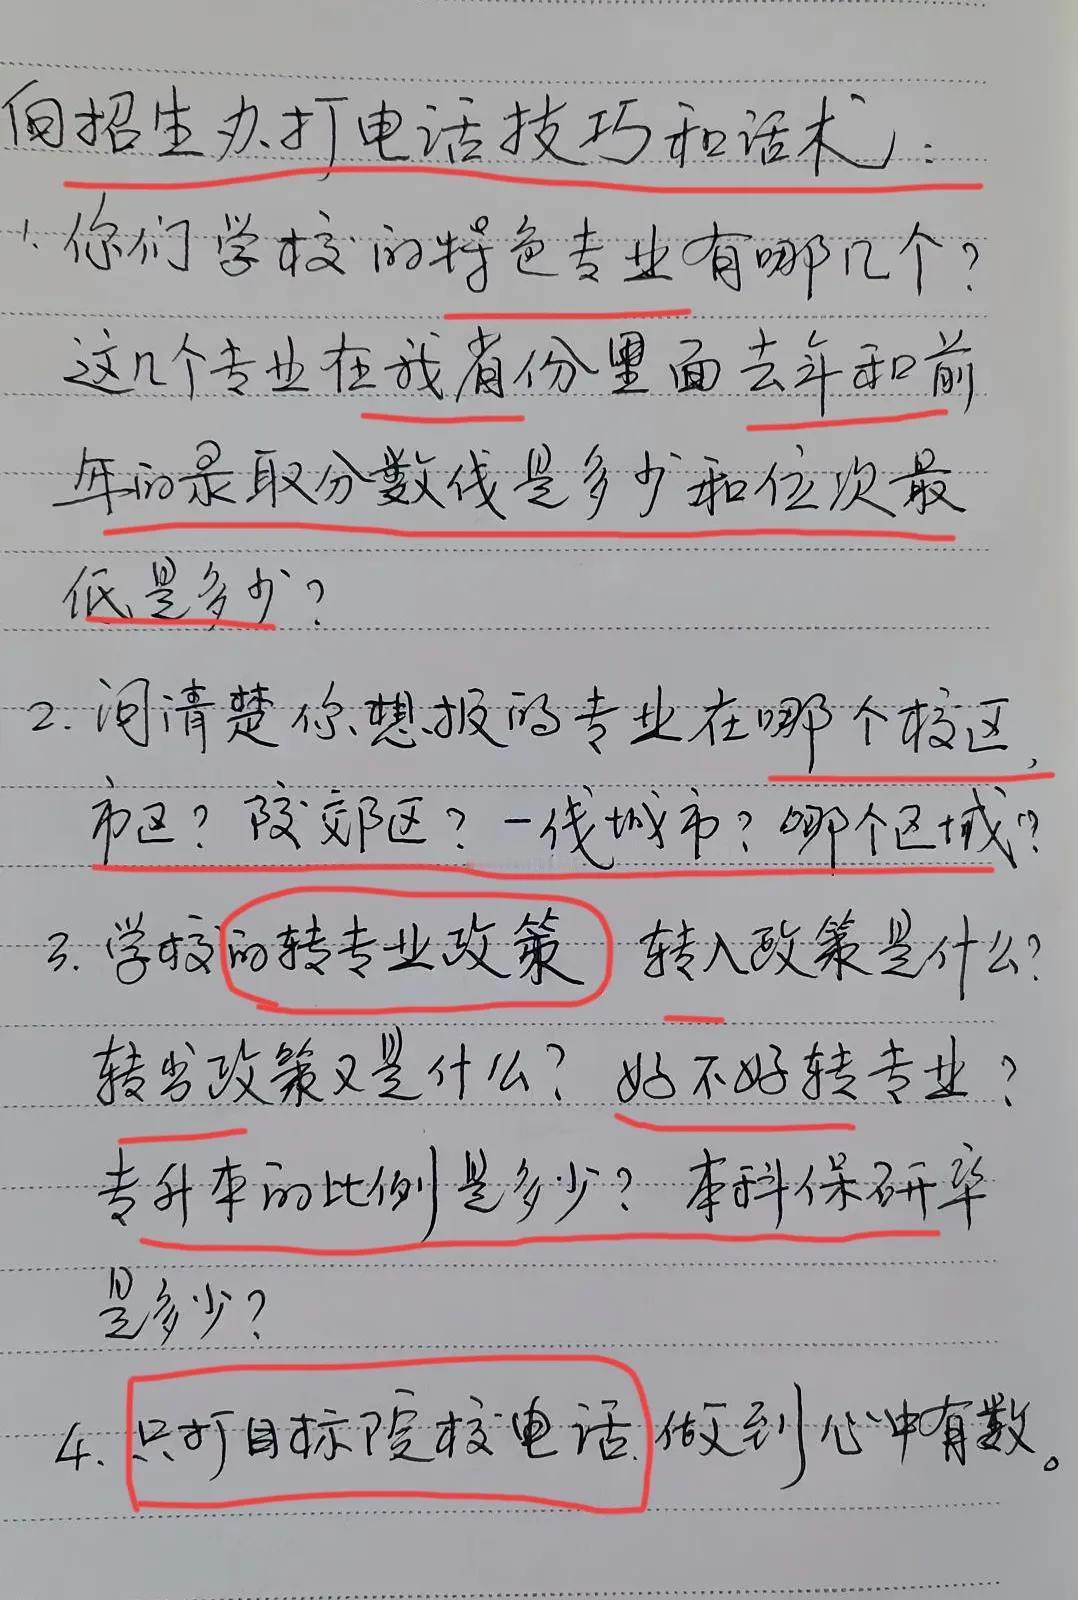 向招生办打电话技巧和话术:
1. 你们学校的特色专业有哪几个?
这几个专业在我省份里面去年和前
年的录取分数线是多少和位次最
低是多少?
2. 问清楚你想报的专业在哪个校区,
市区? 郊区? 一线城市? 哪个区域?
3. 学校的转专业政策 转入政策是什么?
转出政策又是什么? 好不好转专业?
专升本的比例是多少? 本科保研率
是多少?
4. 只打目标院校电话. 做到心中有数。